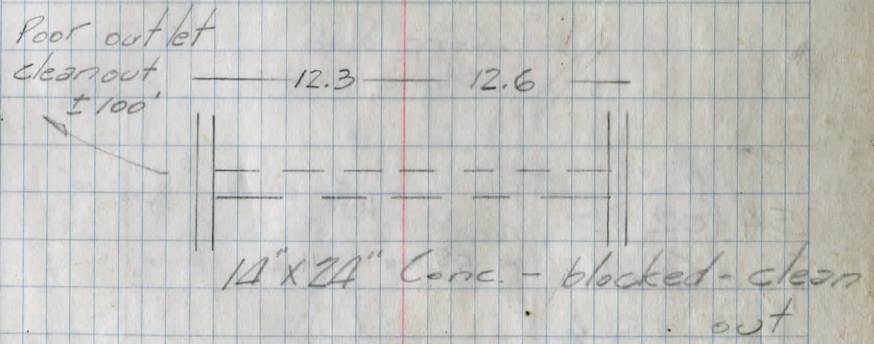 Poor outlet
cleanout
± 100'
12.3 12.6
14" X 24" Conc. - blocked - clean
out